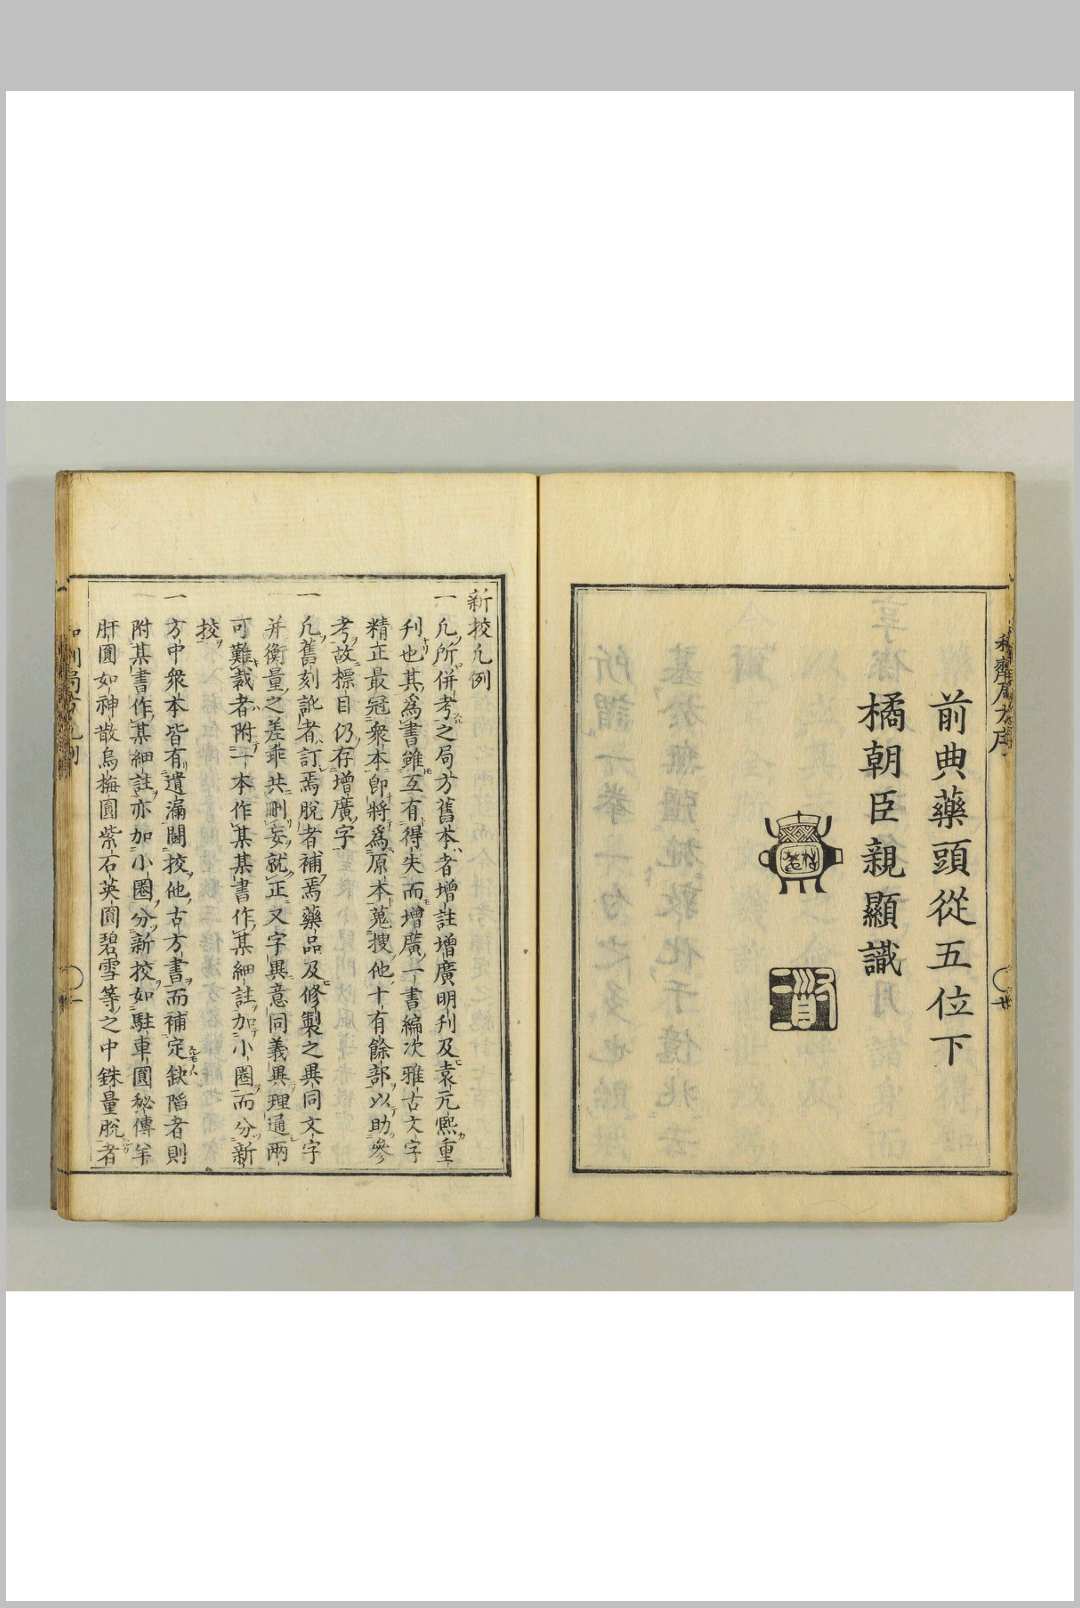 前典藥頭從五位下
橘朝臣親顯識
新挍凡例
一凡所併考之局方舊本者增註增廣明刊及袁元熙重
刊也其爲書雖互有得失而增廣一書編次雅古文字
精正最冠衆本卽將爲原本蒐搜他十有餘部以助參
考故標目仍存增廣字
一凡舊刻訛者訂焉脫者補焉藥品及修製之異同文字
并衡量之差乖共刪妄就正又字異意同義異理通兩
可難裁者附一本作某某書作某細註加小圈而分新
挍
一方中衆本皆有遺漏闕挍他古方書而補定缺陷者則
附某書作某細註亦加小圈分新挍如駐車圓秘傳羊
肝圓如神散烏梅圓紫石英圓碧雪等之中銖量脫者